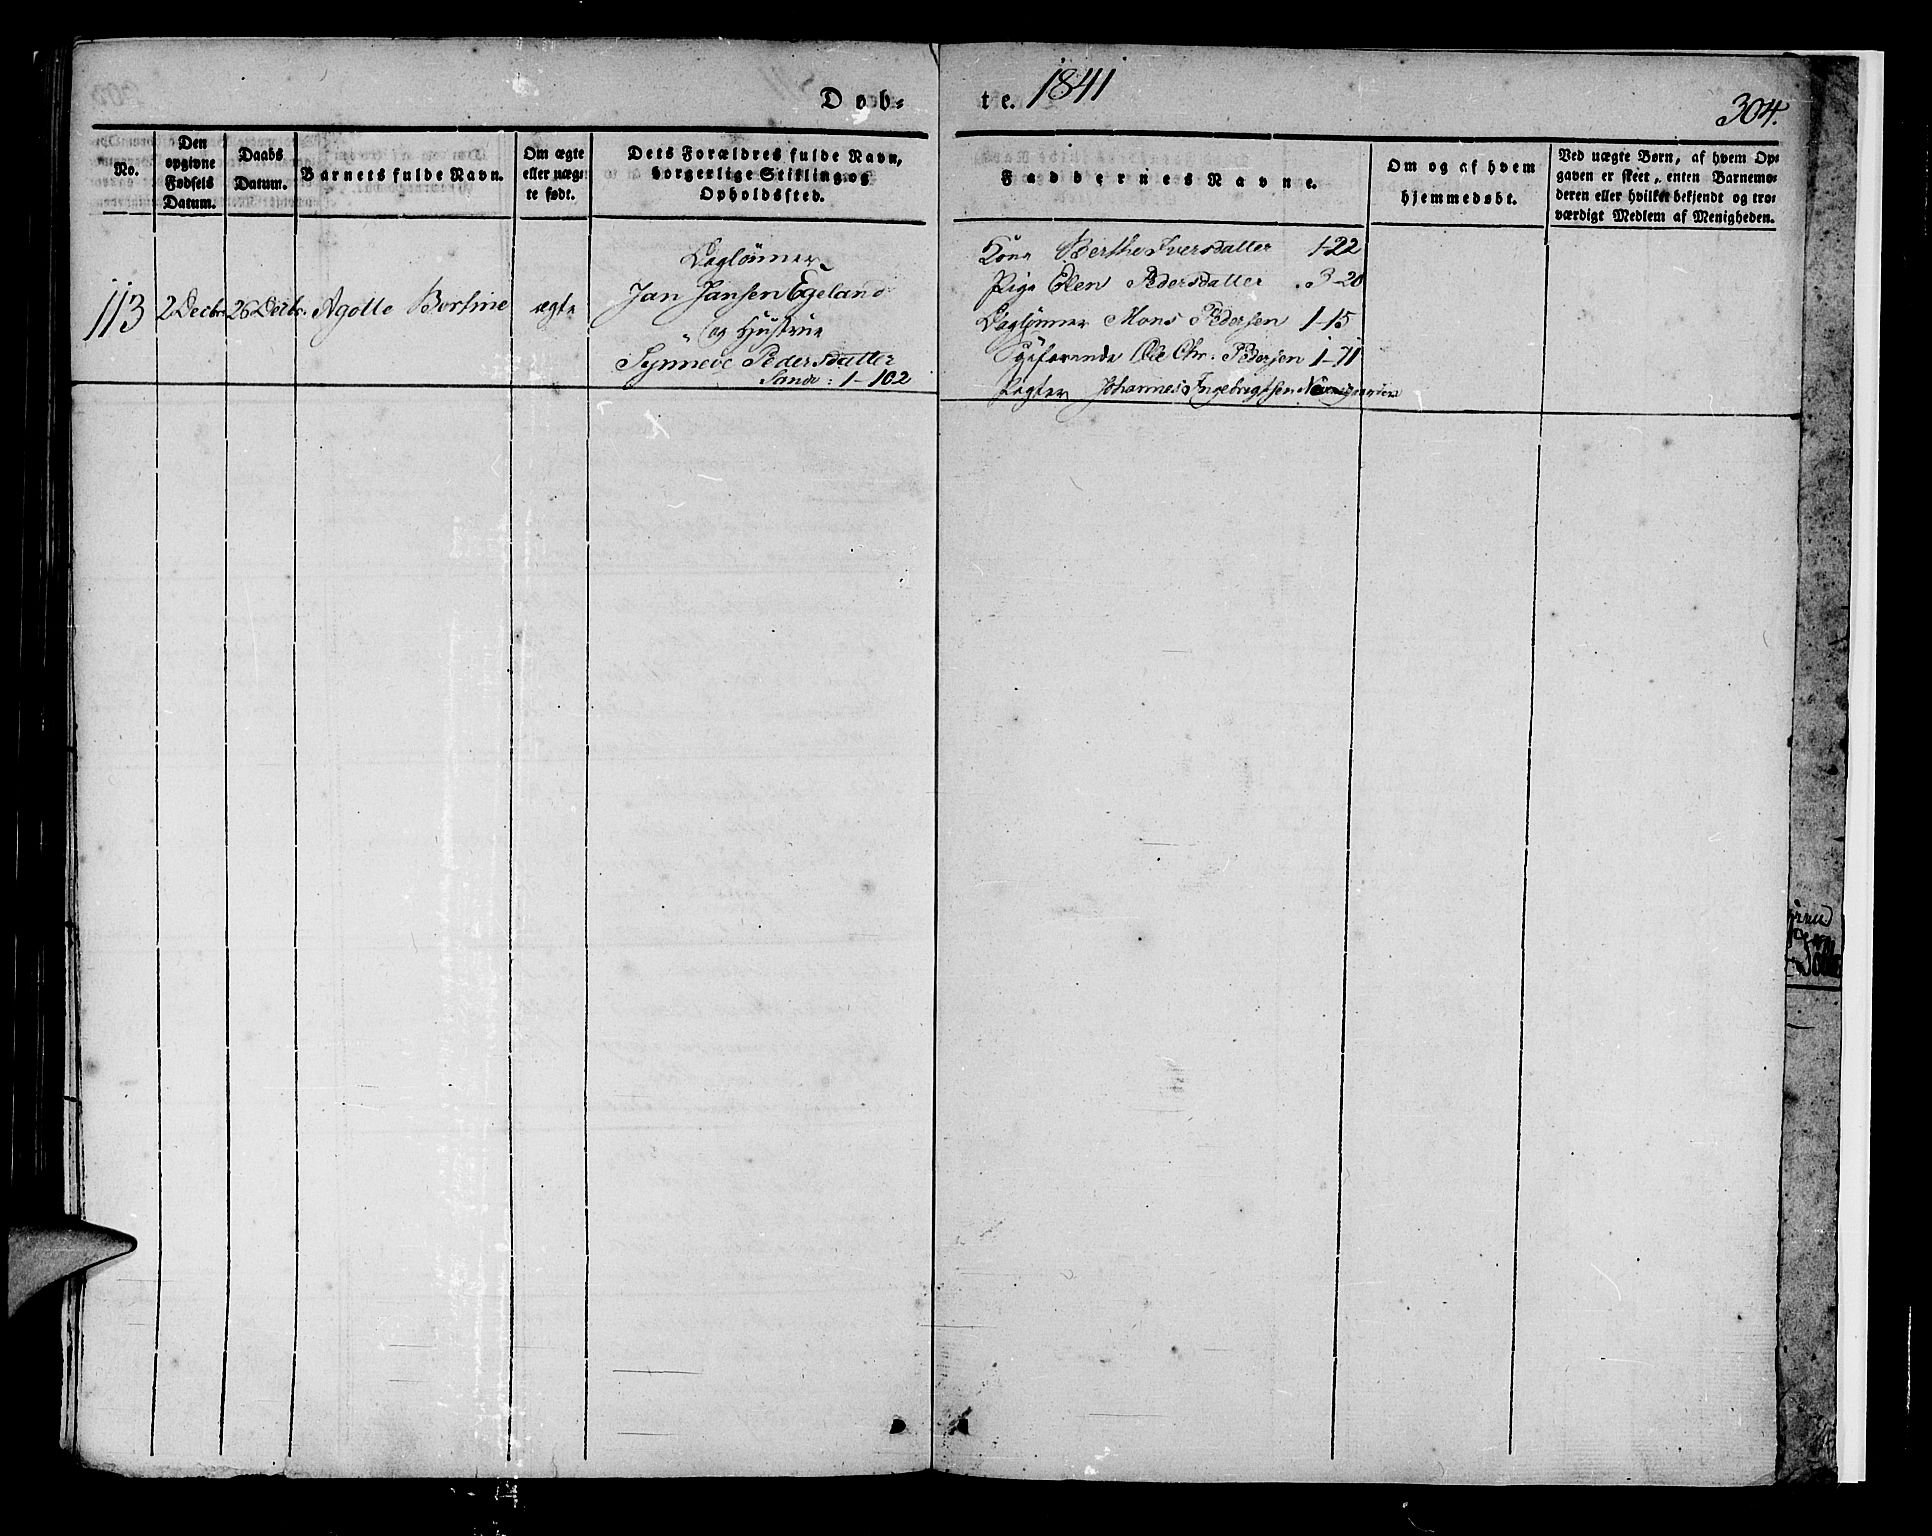 Døb- te. 1841
304.
No.
Den opgivne Fødsels Datum.
Daabs Datum.
Barnets fulde Navn.
Om ægte eller uægte født.
Dets Forældres fulde Navn, borgerlige Stilling og Opholdssted.
Faddernes Navne.
Om og af hvem hjemmedøbt.
Ved uægte Børn, af hvem Op-
gaven er skeet, enten Barnemo-
deren eller hvilket bekjendt og tro-
værdigt Medlem af Menigheden.
113
2 Decbr.
26 Decbr.
Agotte Bertine
ægte
Daglønner
Jan Jansen Egeland
og Hustrue
Synneve Pedersdatter
Sande: 1-102
Kone Berthe Iversdatter 1-22
Pige Elen Pedersdatter 3-20
Daglønner Mons Pedersen 1-15
Ole Chr. Pedersen 1-71
Johannes Ingebregtsen